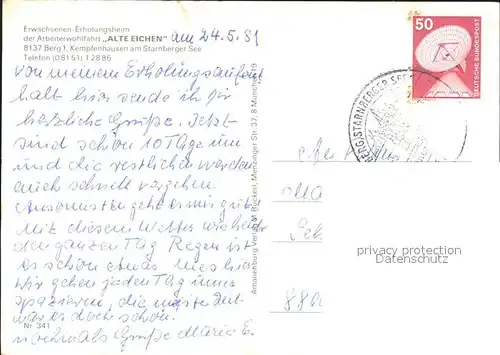 Erwachsenen-Erholungsheim
der Arbeiterwohlfahrt „ALTE EICHEN"
8137 Berg 1, Kempfenhausen am Starnberger See
Telefon (08151) 12886
am 24.5.81
von meinem Erholungsaufent
halt hier sende ich Ihr
herzliche Grüße. Jetzt
sind schon 10 Tage um
und die restlichen werden
auch schnell vergehen.
Ansonsten geht es mir gut.
Mit diesem Wetter
den ganzen Tag Regen ist
es schon etwas
wir gehen jeden Tag
spazieren, die
war es doch schön.
Nr. 341
nochmals Grüße Maria E.
Amalienburg Verlag M. Rückerl, Menzinger Str. 37, 8 München 19
50
DEUTSCHE BUNDESPOST
BERG, STARNBERGER SEE
880
privacy protection
Datenschutz